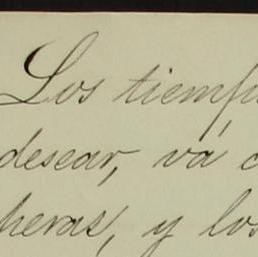 Los tiemp
desear, vá c
heras, y los